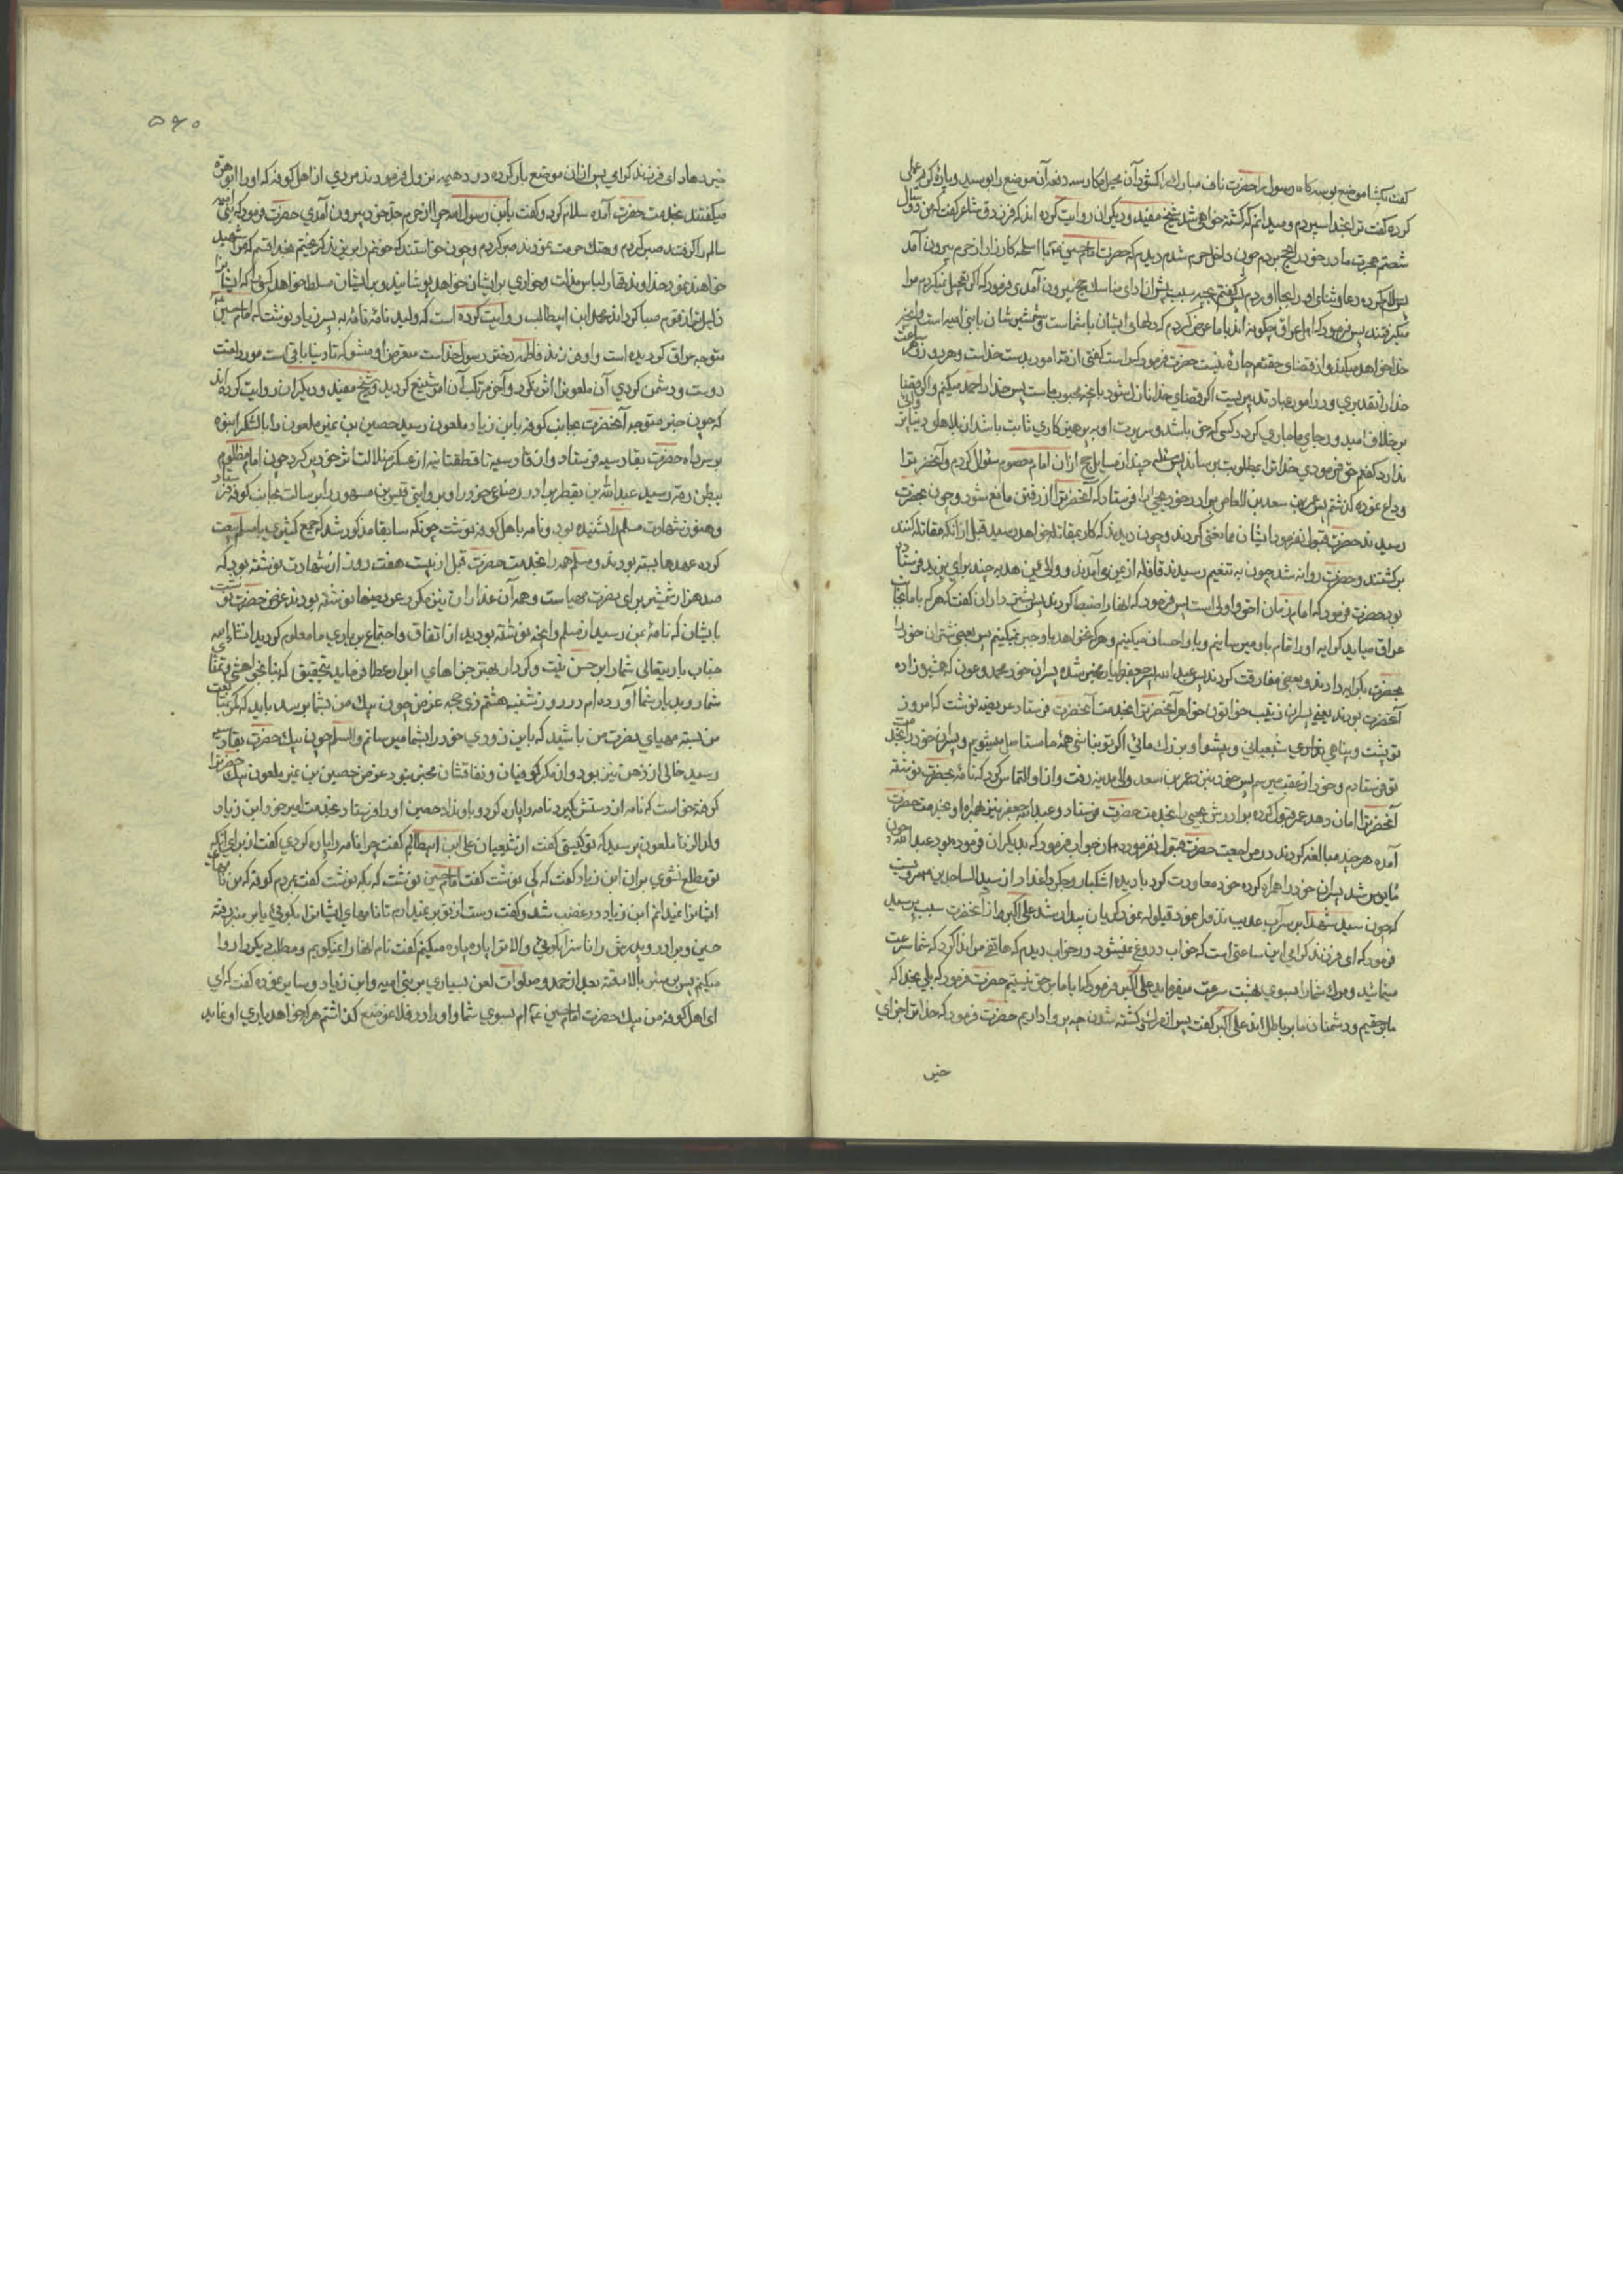 گفت بگشا موضع بوسه گاه رسول را حضرت ناف مبارک را گشود آن سه دفعه آن موضع را بوسید و پاره گریه
کرده گفت ترا بخدا سپردم و میدانم که کشته خواهی شد شیخ مفید و دیگران روایت کرده اند که فرزدق شاعر گفت که من در سال
شصتم هجرت مادر خود را بحج بردم چون داخل حرم شدم دیدم که حضرت امام حسین ع با اسلحه کارزار از حرم بیرون آمد
پس سلام کرده دعا و ثنای او را بجا آوردم پس گفتم بچه سبب پیش از ادای مناسک حج بیرون آمدی فرمود که اگر تعجیل نمیکردم مرا
میگرفتند پس فرمود که اهل عراق چگونه اند با ما عرض کردم که دلهای ایشان با شما است و شمشیرشان با بنی امیه است و آنچه
خدا خواهد میکند و از قضای حقتعم چاره نیست حضرت فرمود که راست گفتی همه امور بدست خداست و هر روز
خدا را تقدیری و در امور عباد تدبیریست اگر قضای خدا نازل شود بآنچه محبوب ماست پس خدا را حمد میکنم و اگر قضا
بر خلاف امید و رجای ما جاری گردد کسی که حق باشد و سریرت او پرهیزکاری ثابت باشد از بلاهای دنیا پروایی
ندارد گفتم حق فرمودی خدا ترا بمطلوبت برساند پس چندان مسایل حج از آن امام معصوم سئوال کردم و آنحضرت را
وداع نموده گذشتم پس عمرو بن سعد بن العاص برادر خود یحیی را فرستاد که آنحضرت را از رفتن مانع شود و چون بحضرت
رسیدند حضرت قبول نفرمود ایشان ممانعتی کردند و چون دیدند که کار بمقاتله خواهد رسید قبل از آنکه مقاتله کنند
برگشتند و حضرت روانه شد چون به تنعیم رسیدند قافله از یمن می آمدند و والی یمن هدیه چند برای یزید فرستاده
بود حضرت فرمود که امام زمان احق و اولی است پس فرمود که آنها را ضبط کردند پس بشتر داران گفت که هر که با ما بجانب
عراق میاید کرایه او را تمام باو میرسانیم و باو احسان میکنیم و هر که نخواهد باو جبر نمیکنیم پس بعضی شتران خود را
بحضرت بکرایه دادند و بعضی مفارقت کردند پس عبدالله پسر جعفر طیار مخبر شده پسران خود محمد و عون که همشیره زاده
آنحضرت بودند یعنی پسران زینب خواتون خواهر آنحضرت را بخدمت آنحضرت فرستاد عریضه نوشت که امروز
تو پشت و پناهی نداری شیعیانی و پیشوا و بزرگ مائی اگر تو نباشی همه ما مستاصل میشویم و پسران خود را بخدمت
تو فرستادم و خود از عقب میرسم پس خود بنزد عمر بن سعد والی مدینه رفت و از او التماس کرد که نامه بحضرت نوشته
آنحضرت را امان دهد عمر قبول کرده برادرش یحیی را بخدمت حضرت فرستاد و عبدالله جعفر نیز همراه او بخدمت حضرت
آمده هر چند مبالغه کردند در مراجعت حضرت قبول نفرموده همان جواب فرمود که بدیگران فرموده بود عبدالله چون
مایوس شد پسران خود را همراه کرده خود معاودت کرد با دیده اشکبار و جگر داغدار از سید الساجدین مرویست
که چون سید شهدا بر سر آب عذیب نزول نمود قیلوله نمود گریان بیدار شد علی اکبر از آنحضرت سبب پرسید
فرمود که ای فرزند گرامی این ساعتی است که خواب دروغ نمیشود در خواب دیدم که هاتفی مرا ندا کرد که شما سرعت
مینمائید و مرگ شما را بسوی بهشت سرعت میفرماید علی اکبر فرمود که ایا ما بر حق نیستیم حضرت فرمود که بلی بخدا که
ما بر حقیم و دشمنان ما بر باطل اند علی اکبر گفت پس از مرگ و کشته شدن چه پروا داریم حضرت فرمود که خدا ترا جزای
خیر
۵۶۰
خیر دهاد ای فرزند گرامی پس از آن موضع بار کرده در دهیمه نزول فرمودند مردی از اهل کوفه که او را ابو هره
میگفتند بخدمت حضرت آمده سلام کرد و گفت یابن رسول الله چرا از حرم جد خود بیرون آمدی حضرت فرمود که بنی امیه
مالم را گرفتند صبر کردم و هتک حرمت نمودند صبر کردم و چون خواستند که خونم را بریزند گریختم بخدا قسم که مرا شهید
خواهند نمود خداوند قهار لباس مذلت و خواری بر ایشان خواهد پوشانید و بر ایشان مسلط خواهد کسی را که ایشانرا
ذلیل تر از قوم صبا گرداند محمد ابن ابیطالب روایت کرده است که ولید نامه به پسر زیاد نوشت که امام حسین
متوجه عراق گردیده است و او فرزند فاطمه دختر رسول خداست متعرض او مشو که تا دنیا باقی است مورد لعنت
دوست و دشمن گردی آن ملعون را اثر نکرد و آخر مرتکب آن امر شنیع گردید و شیخ مفید و دیگران روایت کرده اند
که چون خبر متوجه آنحضرت بجانب کوفه بابن زیاد ملعون رسید حصین بن نمیر ملعون را با لشگر انبوه
بر سر راه حضرت بقادسیه فرستاد و از قادسیه تا قطقطانیه از عسکر ضلالت اثر خود پر کرد چون امام مظلوم
ببطن رمه رسید عبدالله بن یقطر برادر رضاعی خود را و بروایتی قیس بن مسهر را برسالت بجانب کوفه فرستاد
و هنوز شهادت مسلم را نشنیده بود و نامه باهل کوفه نوشت چونکه سابقا مذکور شد که جمع کثیری با مسلم بیعت
کرده عهدها بسته بودند و مسلم همه را بخدمت حضرت قبل از بیست هفت روز از شهادت نوشته بود که
صد هزار شمشیر برای نصرت مهیا است و همه آن غداران نیز مکرر عریضها نوشته بودند غرض حضرت نوشت
بایشان که نامه بمن رسید از مسلم و آنچه نوشته بودید از اتفاق و اجتماع بر یاری ما معلوم گردید انشاءالله
جناب باریتعالی شما را بر حسن نیت و کردار بهترین جزاهای ابرار عطا فرماید بتحقیق که بنا بخواهش و تمنای
شما رو بدیار شما آورده ام در روز شنبه هشتم ذی حجه غرض چون پیک من بشما برسد باید که کمر متابعت
من بسته مهیای نصرت من باشید که باین زودی خود را بشما میرسانم والسلم چون پیک حضرت بقادسیه
رسید خالی از ذهن نیز بود و از مکر کوفیان و نفاقشان مخبر بود غرض حصین بن نمیر ملعون پیک حضرترا
گرفته خواست که نامه از دستش بگیرد نامه را پاره کرد و باو نداد حصین او را فرستاد بخدمت امیر خود ابن زیاد
ولدالزنا ملعون پرسید که تو کیستی گفت از شیعیان علی ابن ابیطالبم گفت چرا نامه را پاره کردی گفت از برای آنکه
تو مطلع نشوی بر آن ابن زیاد گفت که کی نوشت گفت امام حسین نوشت که بکه نوشت گفت بمردم کوفه که من نامهای
ایشانرا نمیدانم ابن زیاد در غضب شد و گفت دست از تو بر نمیدارم تا نامهای ایشانرا نگوئی یا بر منبر رفته
حسین و برادر و پدرش را ناسزا بگوئی و الا ترا پاره پاره میکنم گفت نام آنها را نمیگویم و مطلب دیگر را روا
میکنم پس بر منبر بالا رفته بعد از حمد و صلوات لعن بسیاری بر بنی امیه و ابن زیاد و سایر نموده گفت که ای
ای اهل کوفه من پیک حضرت امام حسین ع ام بسوی شما و او را در فلان موضع گذاشتم هر که خواهد یاری او نماید